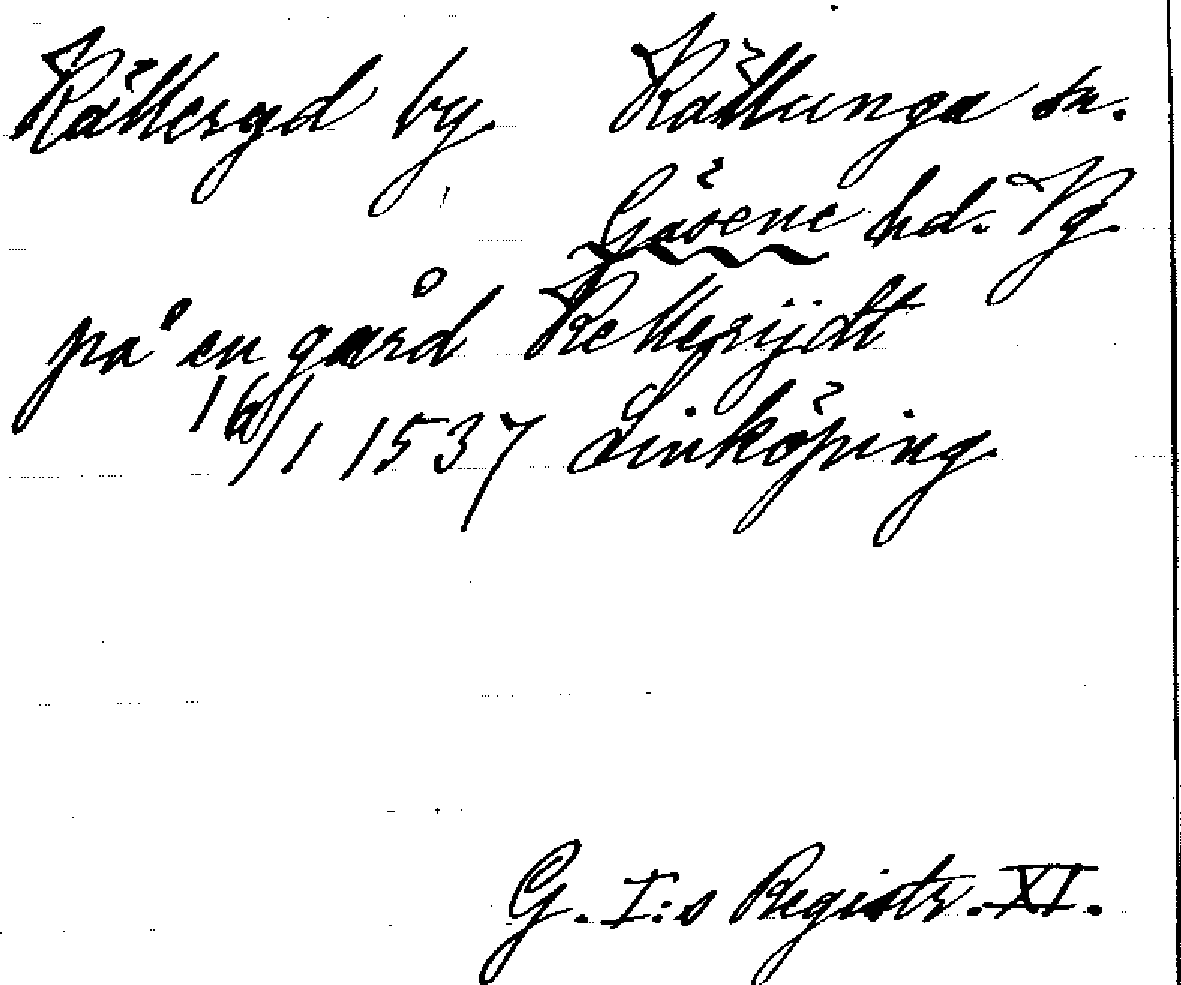 Källeryd by Källunga sn.
Gäsene hd. Vg.
på en gård Kellerijdt
16/1 1537 Linköping
G. I:s Registr. XI.